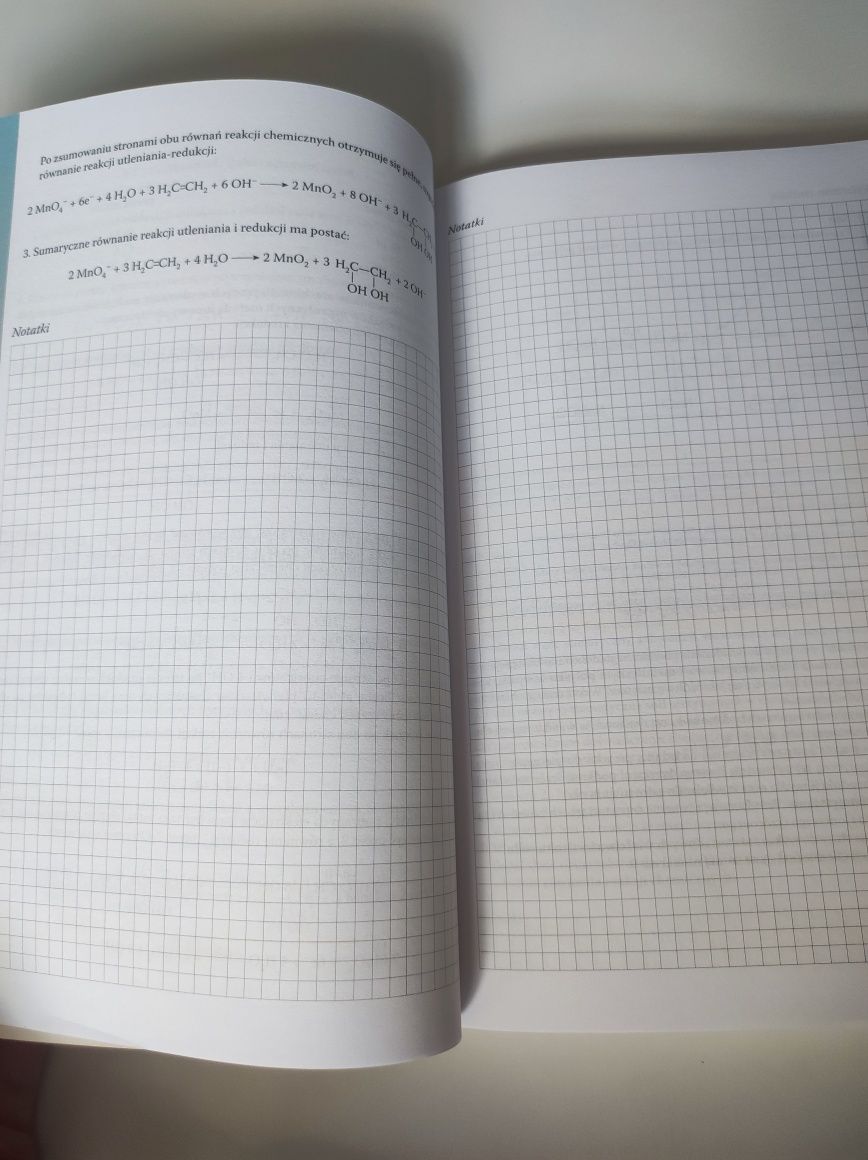 Po zsumowaniu stronami obu równań reakcji chemicznych otrzymuje się pełne
równanie reakcji utleniania-redukcji:
2 MnO₄⁻ + 6e⁻ + 4 H₂O + 3 H₂C=CH₂ + 6 OH⁻ ⟶ 2 MnO₂ + 8 OH⁻ + 3 H₂C—CH
OH OH
3. Sumaryczne równanie reakcji utleniania i redukcji ma postać:
2 MnO₄⁻ + 3 H₂C=CH₂ + 4 H₂O ⟶ 2 MnO₂ + 3 H₂C—CH₂ + 2 OH⁻
OH OH
Notatki
Notatki